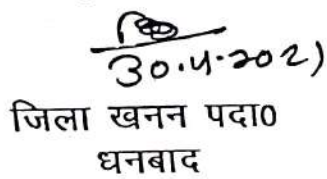 30.4.2021
जिला खनन पदा0
धनबाद